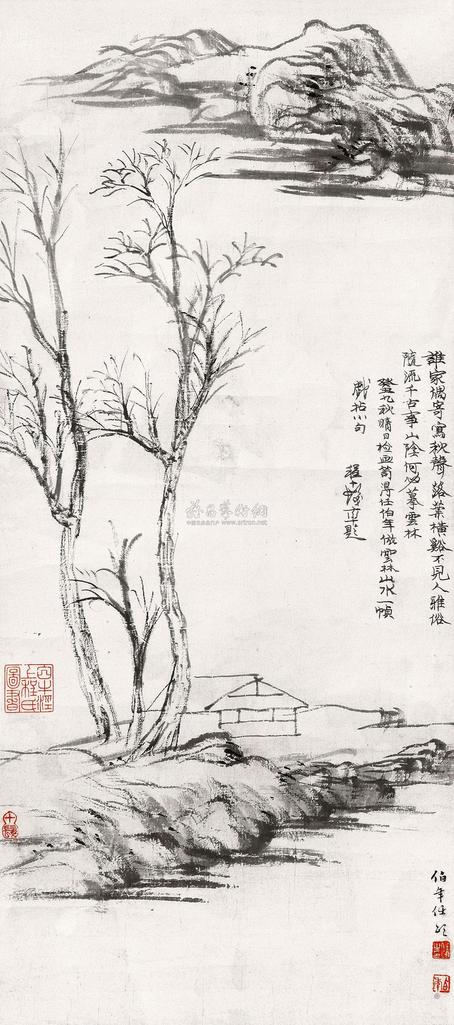 誰家偶寄寫秋聲落葉橫谿不見人雅俗
流千古事山陰何必摹雲林
癸九秋晴日檢畫笥得任伯年仿雲林山水一幀
戲拈小句
程十髮並題
伯年任頤